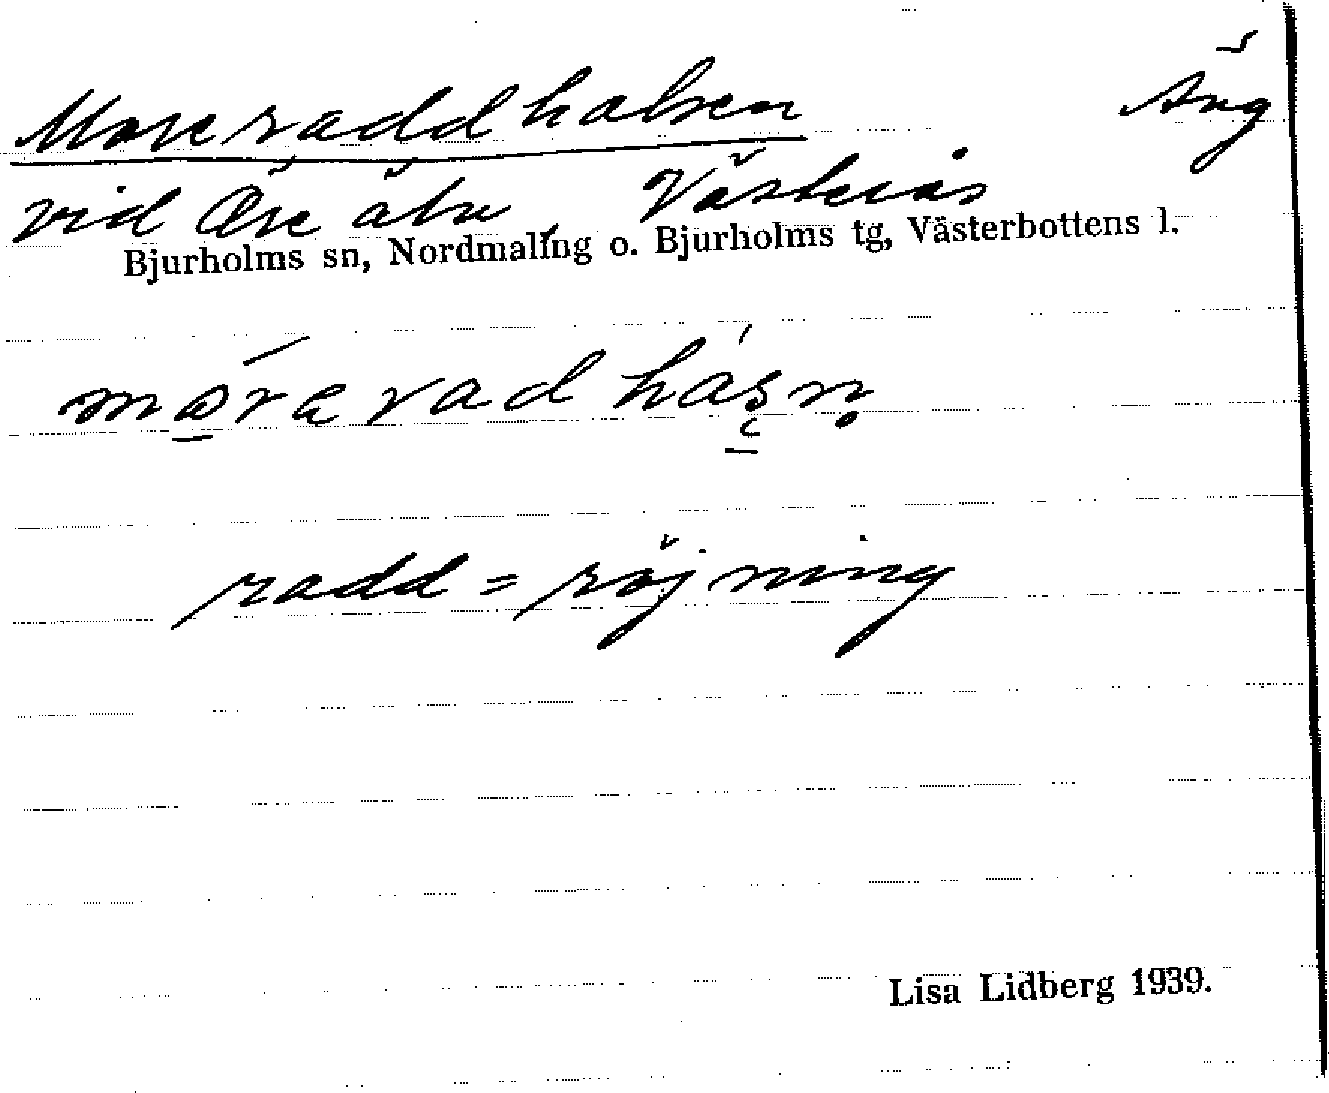 Moreraddhalsen Äng
vid Öre älv, Västerås
Bjurholms sn, Nordmaling o. Bjurholms tg, Västerbottens l.
radd = röjning
Lisa Lidberg 1939.